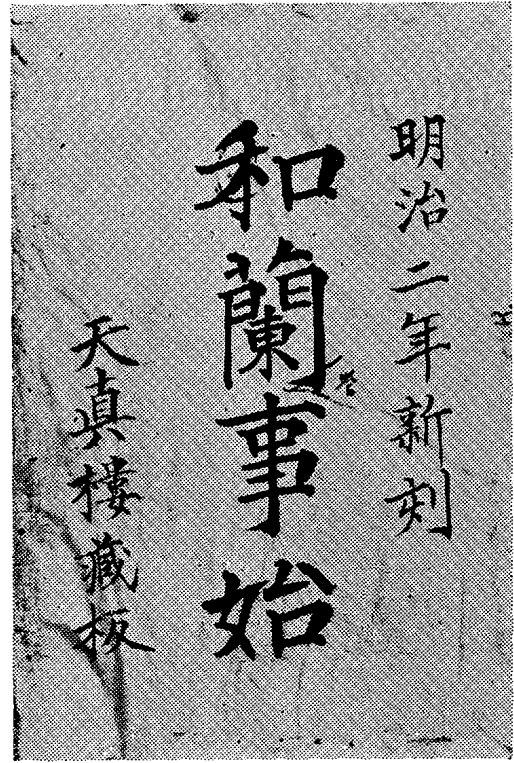 明治二年新刻
和蘭事始
天真樓藏板